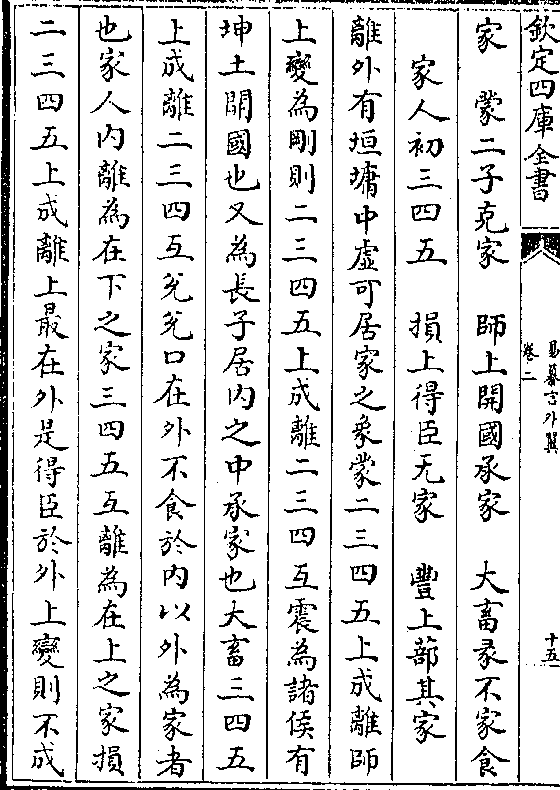 欽定四庫全書
易纂言外翼
卷二
十五
家　蒙二子克家　師上開國承家　大畜彖不家食
家人初三四五　損上得臣无家　豐上蔀其家
離外有垣墉中虚可居家之象蒙二三四五上成離師
上變為剛則二三四五上成離二三四互震為諸侯有
坤土開國也又為長子居内之中承家也大畜三四五
上成離二三四互兌兌口在外不食於内以外為家者
也家人内離為在下之家三四五互離為在上之家損
二三四五上成離上最在外是得臣於外上變則不成